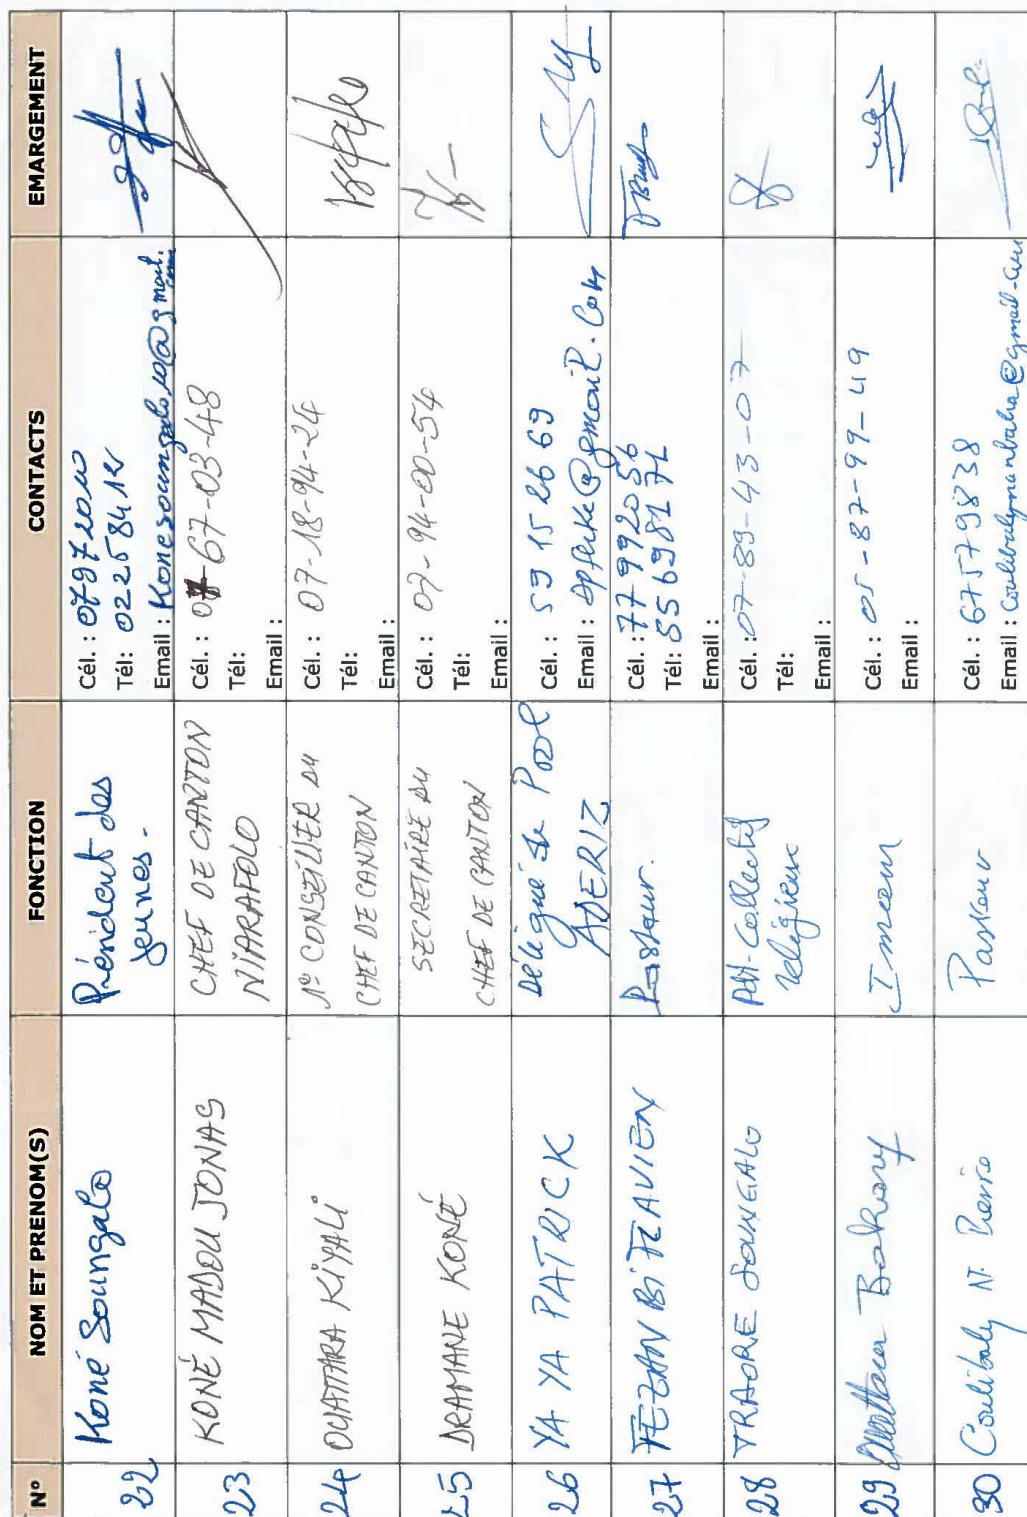 N° NOM ET PRENOM(S) FONCTION CONTACTS EMARGEMENT
22 Koné Soungalo
Président des
jeunes.
Cél. : 07972010
Tél: 02258412
Email : Konesoungalo10@gmail.
com
23 KONÉ MADOU JONAS
CHEF DE CANTON
NIARAFOLO
Cél. : 07-67-03-48
Tél:
Email :
24 OUATTARA KIYALI
1er CONSEILLER DU
CHEF DE CANTON
Cél. : 07-18-94-24
Tél:
Email :
25 DRAMANE KONÉ
SECRETAIRE DU
CHEF DE CANTON
Cél. : 07-94-00-54
Tél:
Email :
26 YA YA PATRICK
Délégué de Pool
ADERIZ
Cél. : 59 15 26 69
Email : @gmail.com
27 TEZAN BI FLAVIEN
Pasteur.
Cél. : 77992056
Tél: 55698171
Email :
28 TRAORE SOUNGALO
Pdt-Collectif
religieux
Cél. : 07-89-43-07
Tél:
Email :
29 Ouattara Bakary
Imam
Cél. : 05-87-99-49
Email :
30 Coulibaly N. Pierre
Pasteur
Cél. : 67579838
Email : Coulibalynanbaha@gmail.com